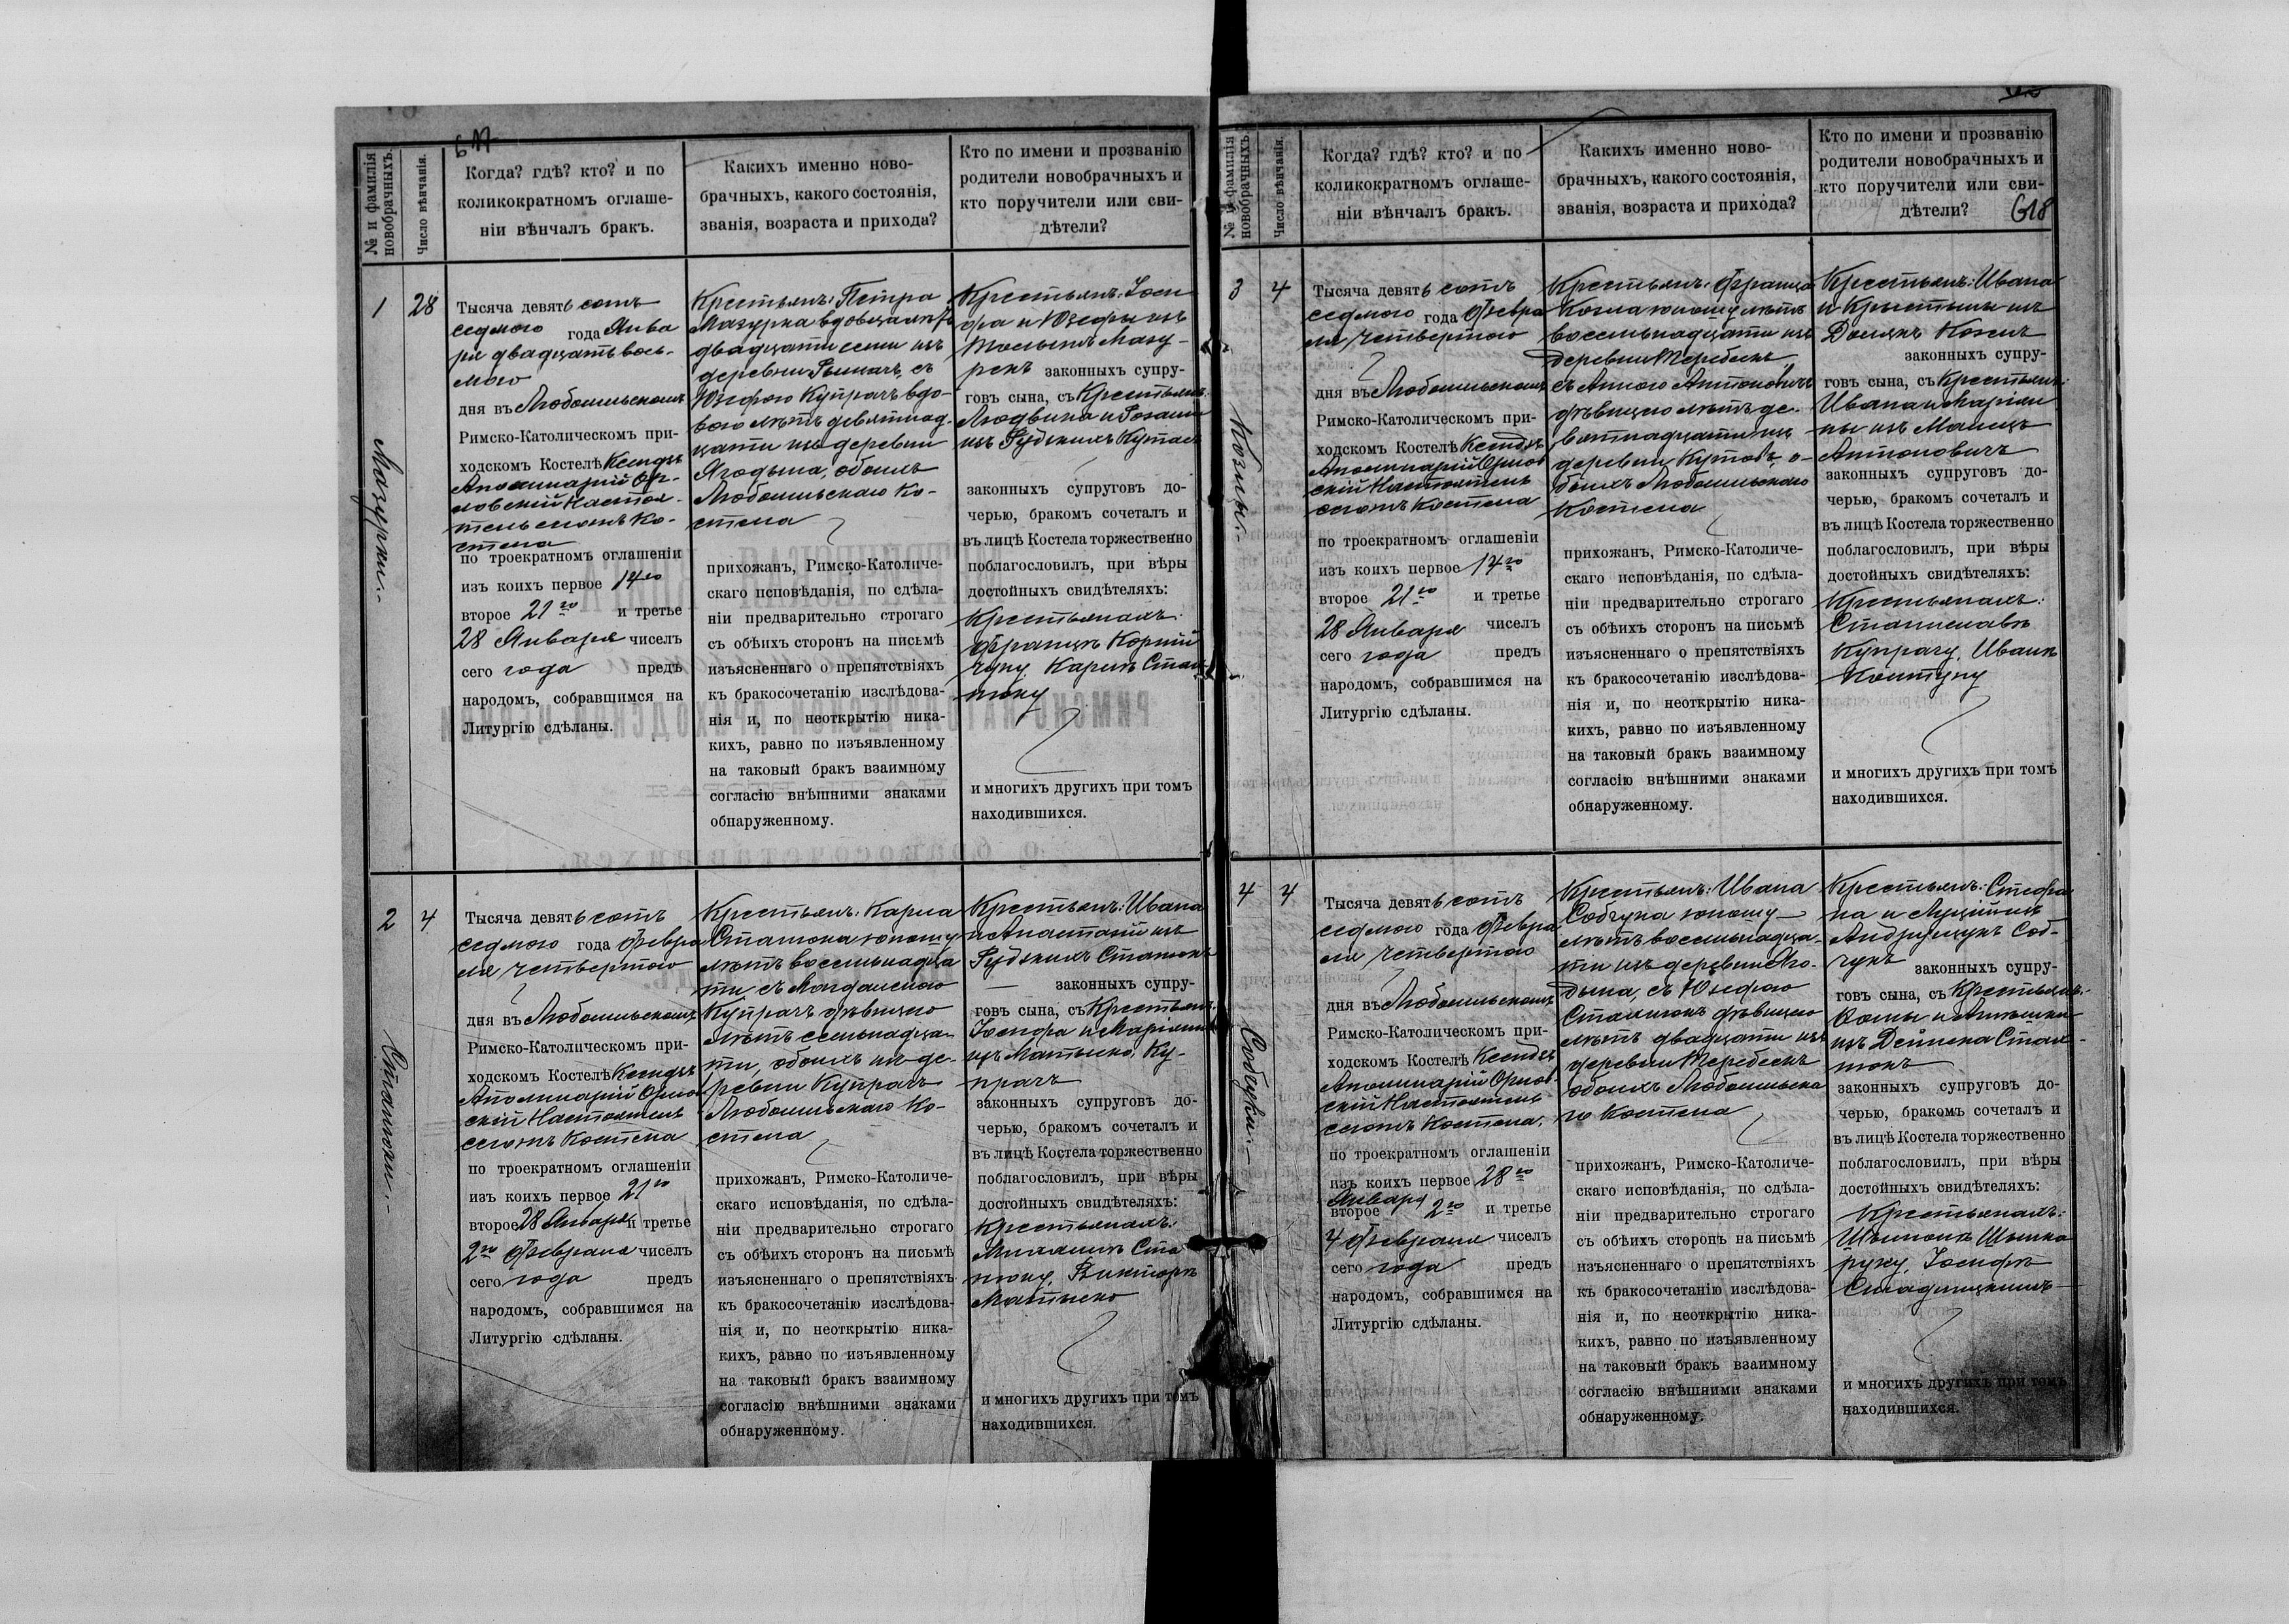 617
№ и фамилія новобрачныхъ.
Число вѣнчанія.
Когда? гдѣ? кто? и по
коликократномъ оглаше-
ніи вѣнчалъ бракъ.
Какихъ именно ново-
брачныхъ, какого состоянія,
званія, возраста и прихода?
Кто по имени и прозванію
родители новобрачныхъ и
кто поручители или сви-
дѣтели?
1
28
Мазурки.-
Тысяча девять сотъ
седмого года Янва
ря двадцать вось-
мого
дня въ Любашьскомъ
Римско-Католическомъ при-
ходскомъ Костелѣ Ксендзъ
Аполинарій Ор-
ловскій Настоя-
тель сногоъ Ко-
стела
по троекратномъ оглашеніи
изъ коихъ первое 14го
второе 21го и третье
28 Января чиселъ
сего года предъ
народомъ, собравшимся на
Литургію сдѣланы.
Крестьянъ: Петра
Мазурка вдовца лѣтъ
двадцати семи изъ
деревни съ
Юзефою Купрачъ вдо-
вою лѣтъ девятнад-
цати изъ деревни
Ягодына, обоихъ
Любашьскаго Ко-
стела
прихожанъ, Римско-Католиче-
скаго исповѣданія, по сдѣла-
ніи предварительно строгаго
съ обѣихъ сторонъ на письмѣ
изъясненнаго о препятствіяхъ
къ бракосочетанію изслѣдова-
нія и, по неоткрытію ника-
кихъ, равно по изъявленному
на таковый бракъ взаимному
согласію внѣшними знаками
обнаруженному.
Крестьянъ: Іоси
фа и Юзефы изъ
Мазу-
рекъ законныхъ супру-
говъ сына, съ Крестьянъ:
Людвика и Розаліи
изъ Рудскихъ
законныхъ супруговъ до-
черью, бракомъ сочеталъ и
въ лицѣ Костела торжественно
поблагословилъ, при вѣры
достойныхъ свидѣтеляхъ:
Крестьянахъ:
Францѣ Корній
чуку, Карлѣ Стань-
тюку
и многихъ другихъ при томъ
находившихся.
2
4
Станюки.-
Тысяча девять сотъ
седмого года Февра
ля четвертого
дня въ Любашьскомъ
Римско-Католическомъ при-
ходскомъ Костелѣ Ксендзъ
Аполинарій Орлов
скій Настоятель
Костела
по троекратномъ оглашеніи
изъ коихъ первое 21го
второе 28 Января и третье
2го Февраля чиселъ
сего года предъ
народомъ, собравшимся на
Литургію сдѣланы.
Крестьянъ: Карла
Станюка юношу
лѣтъ восемьнадца
ти съ Магдаленою
Купрачъ дѣвицею
лѣтъ семьнадца-
ти, обоихъ изъ де-
ревни Купраче
Любашьскаго Ко-
стела
прихожанъ, Римско-Католиче-
скаго исповѣданія, по сдѣла-
ніи предварительно строгаго
съ обѣихъ сторонъ на письмѣ
изъясненнаго о препятствіяхъ
къ бракосочетанію изслѣдова-
нія и, по неоткрытію ника-
кихъ, равно по изъявленному
на таковый бракъ взаимному
согласію внѣшними знаками
обнаруженному.
Крестьянъ: Ивана
и Анастазіи изъ
Рудскихъ Станюкъ
законныхъ супру-
говъ сына, съ Крестьянъ:
Іосифа и Маріанны
изъ Матыско, Ку-
прачъ
законныхъ супруговъ до-
черью, бракомъ сочеталъ и
въ лицѣ Костела торжественно
поблагословилъ, при вѣры
достойныхъ свидѣтеляхъ:
Крестьянахъ:
Михаилѣ Ста
нюку, Викторѣ
Матыско
и многихъ другихъ при томъ
находившихся.
618
№ и фамилія новобрачныхъ
Число вѣнчанія.
Когда? гдѣ? кто? и по
коликократномъ оглаше-
ніи вѣнчалъ бракъ.
Какихъ именно ново-
брачныхъ, какого состоянія,
званія, возраста и прихода?
Кто по имени и прозванію
родители новобрачныхъ и
кто поручители или сви-
дѣтели?
3
4
Козлы.-
Тысяча девять сотъ
седмого года Февра
ля четвертого
дня въ Любашьскомъ
Римско-Католическомъ при-
ходскомъ Костелѣ Ксендзъ
Аполинарій Орлов
скій Настоятель
Костела
по троекратномъ оглашеніи
изъ коихъ первое 14го
второе 21го и третье
28 Января чиселъ
сего года предъ
народомъ, собравшимся на
Литургію сдѣланы.
Крестьянъ: Франца
Козла юношу лѣтъ
восемьнадцати изъ
деревни Теребеекъ
съ Анною Антоновичъ
дѣвицею лѣтъ де-
вятнадцати изъ
деревни Кутокъ, о-
боихъ Любашьскаго
Костела
прихожанъ, Римско-Католиче-
скаго исповѣданія, по сдѣла-
ніи предварительно строгаго
съ обѣихъ сторонъ на письмѣ
изъясненнаго о препятствіяхъ
къ бракосочетанію изслѣдова-
нія и, по неоткрытію ника-
кихъ, равно по изъявленному
на таковый бракъ взаимному
согласію внѣшними знаками
обнаруженному.
Крестьянъ: Ивана
и Крыстыны изъ
Козелъ
законныхъ супру-
говъ сына, съ Крестьянъ:
Ивана и Маріан
ны изъ
Антоновичъ
законныхъ супруговъ до-
черью, бракомъ сочеталъ и
въ лицѣ Костела торжественно
поблагословилъ, при вѣры
достойныхъ свидѣтеляхъ:
Крестьянахъ:
Станиславѣ
Купрачу, Иванѣ
Ковтуну
и многихъ другихъ при томъ
находившихся.
4
4
Собчуки.-
Тысяча девять сотъ
седмого года Февра
ля четвертого
дня въ Любашьскомъ
Римско-Католическомъ при-
ходскомъ Костелѣ Ксендзъ
Аполинарій Орлов-
скій Настоятель
Костела,
по троекратномъ оглашеніи
изъ коихъ первое 28го
Января
второе 2го и третье
4 Февраля чиселъ
сего года предъ
народомъ, собравшимся на
Литургію сдѣланы.
Крестьянъ: Ивана
Собчука юношу
лѣтъ восемьнадца-
ти изъ деревни Яго-
дына, съ Юзефою
дѣвицею
лѣтъ двадцати изъ
деревни Теребеекъ
обоихъ Любашьска
го Костела
прихожанъ, Римско-Католиче-
скаго исповѣданія, по сдѣла-
ніи предварительно строгаго
съ обѣихъ сторонъ на письмѣ
изъясненнаго о препятствіяхъ
къ бракосочетанію изслѣдова-
нія и, по неоткрытію ника-
кихъ, равно по изъявленному
на таковый бракъ взаимному
согласію внѣшними знаками
обнаруженному.
Крестьянъ: Стефа
на и
Андрущукъ Соб-
чукъ законныхъ супру-
говъ сына, съ Крестьянъ:
Ѳомы и
изъ
законныхъ супруговъ до-
черью, бракомъ сочеталъ и
въ лицѣ Костела торжественно
поблагословилъ, при вѣры
достойныхъ свидѣтеляхъ:
Крестьянахъ:
Шимонѣ Шынка
руку, Іосифѣ
и многихъ другихъ при томъ
находившихся.